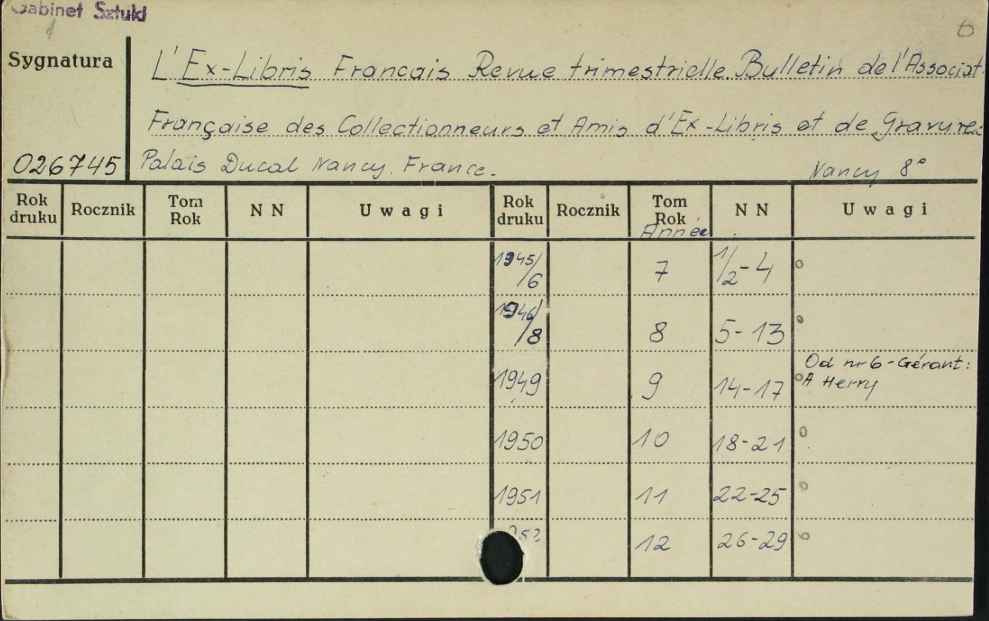 Gabinet Sztuki
6
Sygnatura
L'Ex-Libris Francais Revue trimestrielle Bulletin de l'Associat
Française des Collectionneurs et Amis d'Ex-Libris et de Gravures
026745 Palais Ducal Nancy. France. Nancy 8°
Rok druku Rocznik Tom Rok NN Uwagi Rok druku Rocznik Tom Rok NN Uwagi
Année
1945/6 7 1/2-4
1946/8 8 5-13
Od nr 6 - Gérant:
1949 9 14-17 A Herry
1950 10 18-21
1951 11 22-25
12 26-29